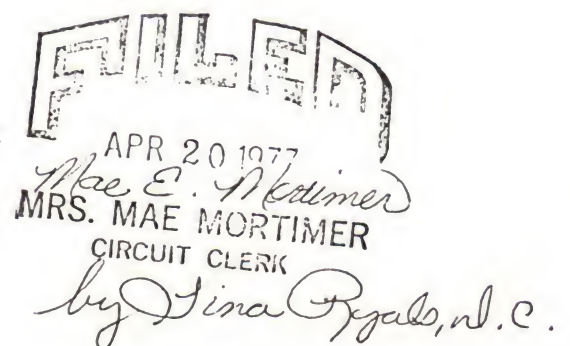 FILED
APR 20 1977
Mae E. Mortimer
MRS. MAE MORTIMER
CIRCUIT CLERK
by Tina Ryals, D.C.